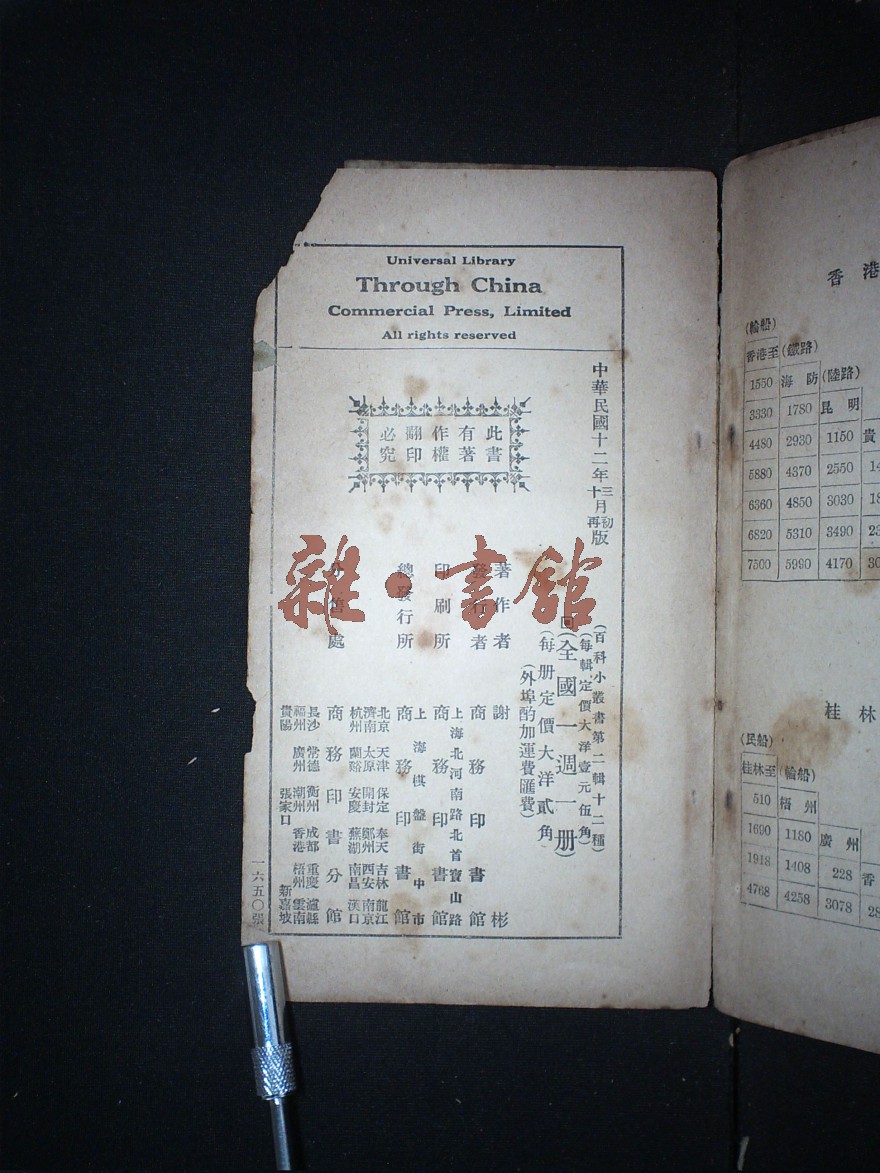 Universal Library
Through China
Commercial Press, Limited
All rights reserved
此書
有著
作權
翻印
必究
中華民國十二年三月初版
十 再
(百科小叢書第二輯十二種)
(每輯定價大洋壹元伍角)
(全國一週一册)
(每册定價大洋貳角)
(外埠酌加運費匯費)
著作者 謝彬
發行者 商務印書館
印刷所 上海北河南路北首寶山路
商務印書館
總發行所 上海棋盤街中市
商務印書館
分售處 商務印書分館
北京 天津 保定 奉天 吉林 龍江
濟南 太原 開封 鄭州 西安 南京
杭州 蘭谿 安慶 蕪湖 南昌 漢口
長沙 常德 衡州 成都 重慶 瀘縣
福州 廣州 潮州 香港 梧州 雲南
貴陽 張家口 新嘉坡
一六五〇張
雜·書館
香港
(輪船)
香港至 (鐵路)
1550 海防 (陸路)
3330 1780 昆明
4480 2930 1150 貴
5880 4370 2550
6360 4850 3030
6820 5310 3490
7500 5990 4170
桂林
(民船)
桂林至 (輪船)
510 梧州
1690 1180 廣州
1918 1408 228 香
4768 4258 3078